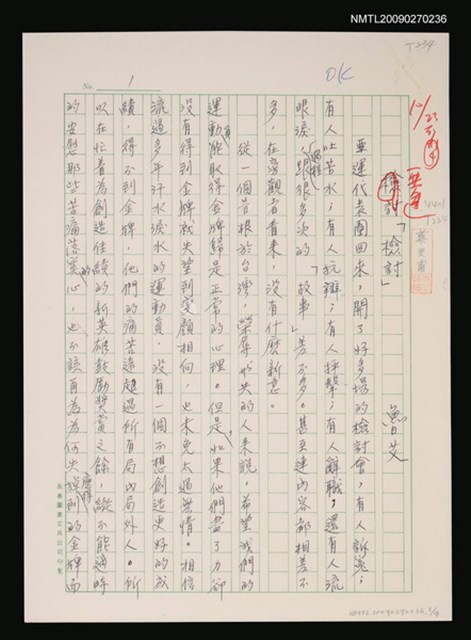 NMTL20090270236
T234
OK
No. 1
檢討「檢討」
魯艾
亞運代表團回來，開了好多場的檢討會，有人訴冤；
有人吐苦水；有人抗辯；有人抨擊；有人辭職；還有人流
眼淚，過程跟很多次的「故事」差不多。甚至連內容都相差不
多，在旁觀者看來，沒有什麼新意。
從一個苦根於台灣，榮辱於失的人來說，希望我們的
運動員能取得金牌歸是正常的心理。但是，如果他們盡了力卻
沒有得到金牌就失望到變顏相向，也未免太過無情。相信
流過多年汗水淚水的運動員，沒有一個不想創造更好的成
績，得不到金牌，他們的痛苦遠超過所有局內局外人。所
以在忙着為創造佳績的新英雄鼓勵獎賞之餘，縱不能適時
的安慰那些苦痛落寞的心，也不該再為為何失掉應得的金牌而